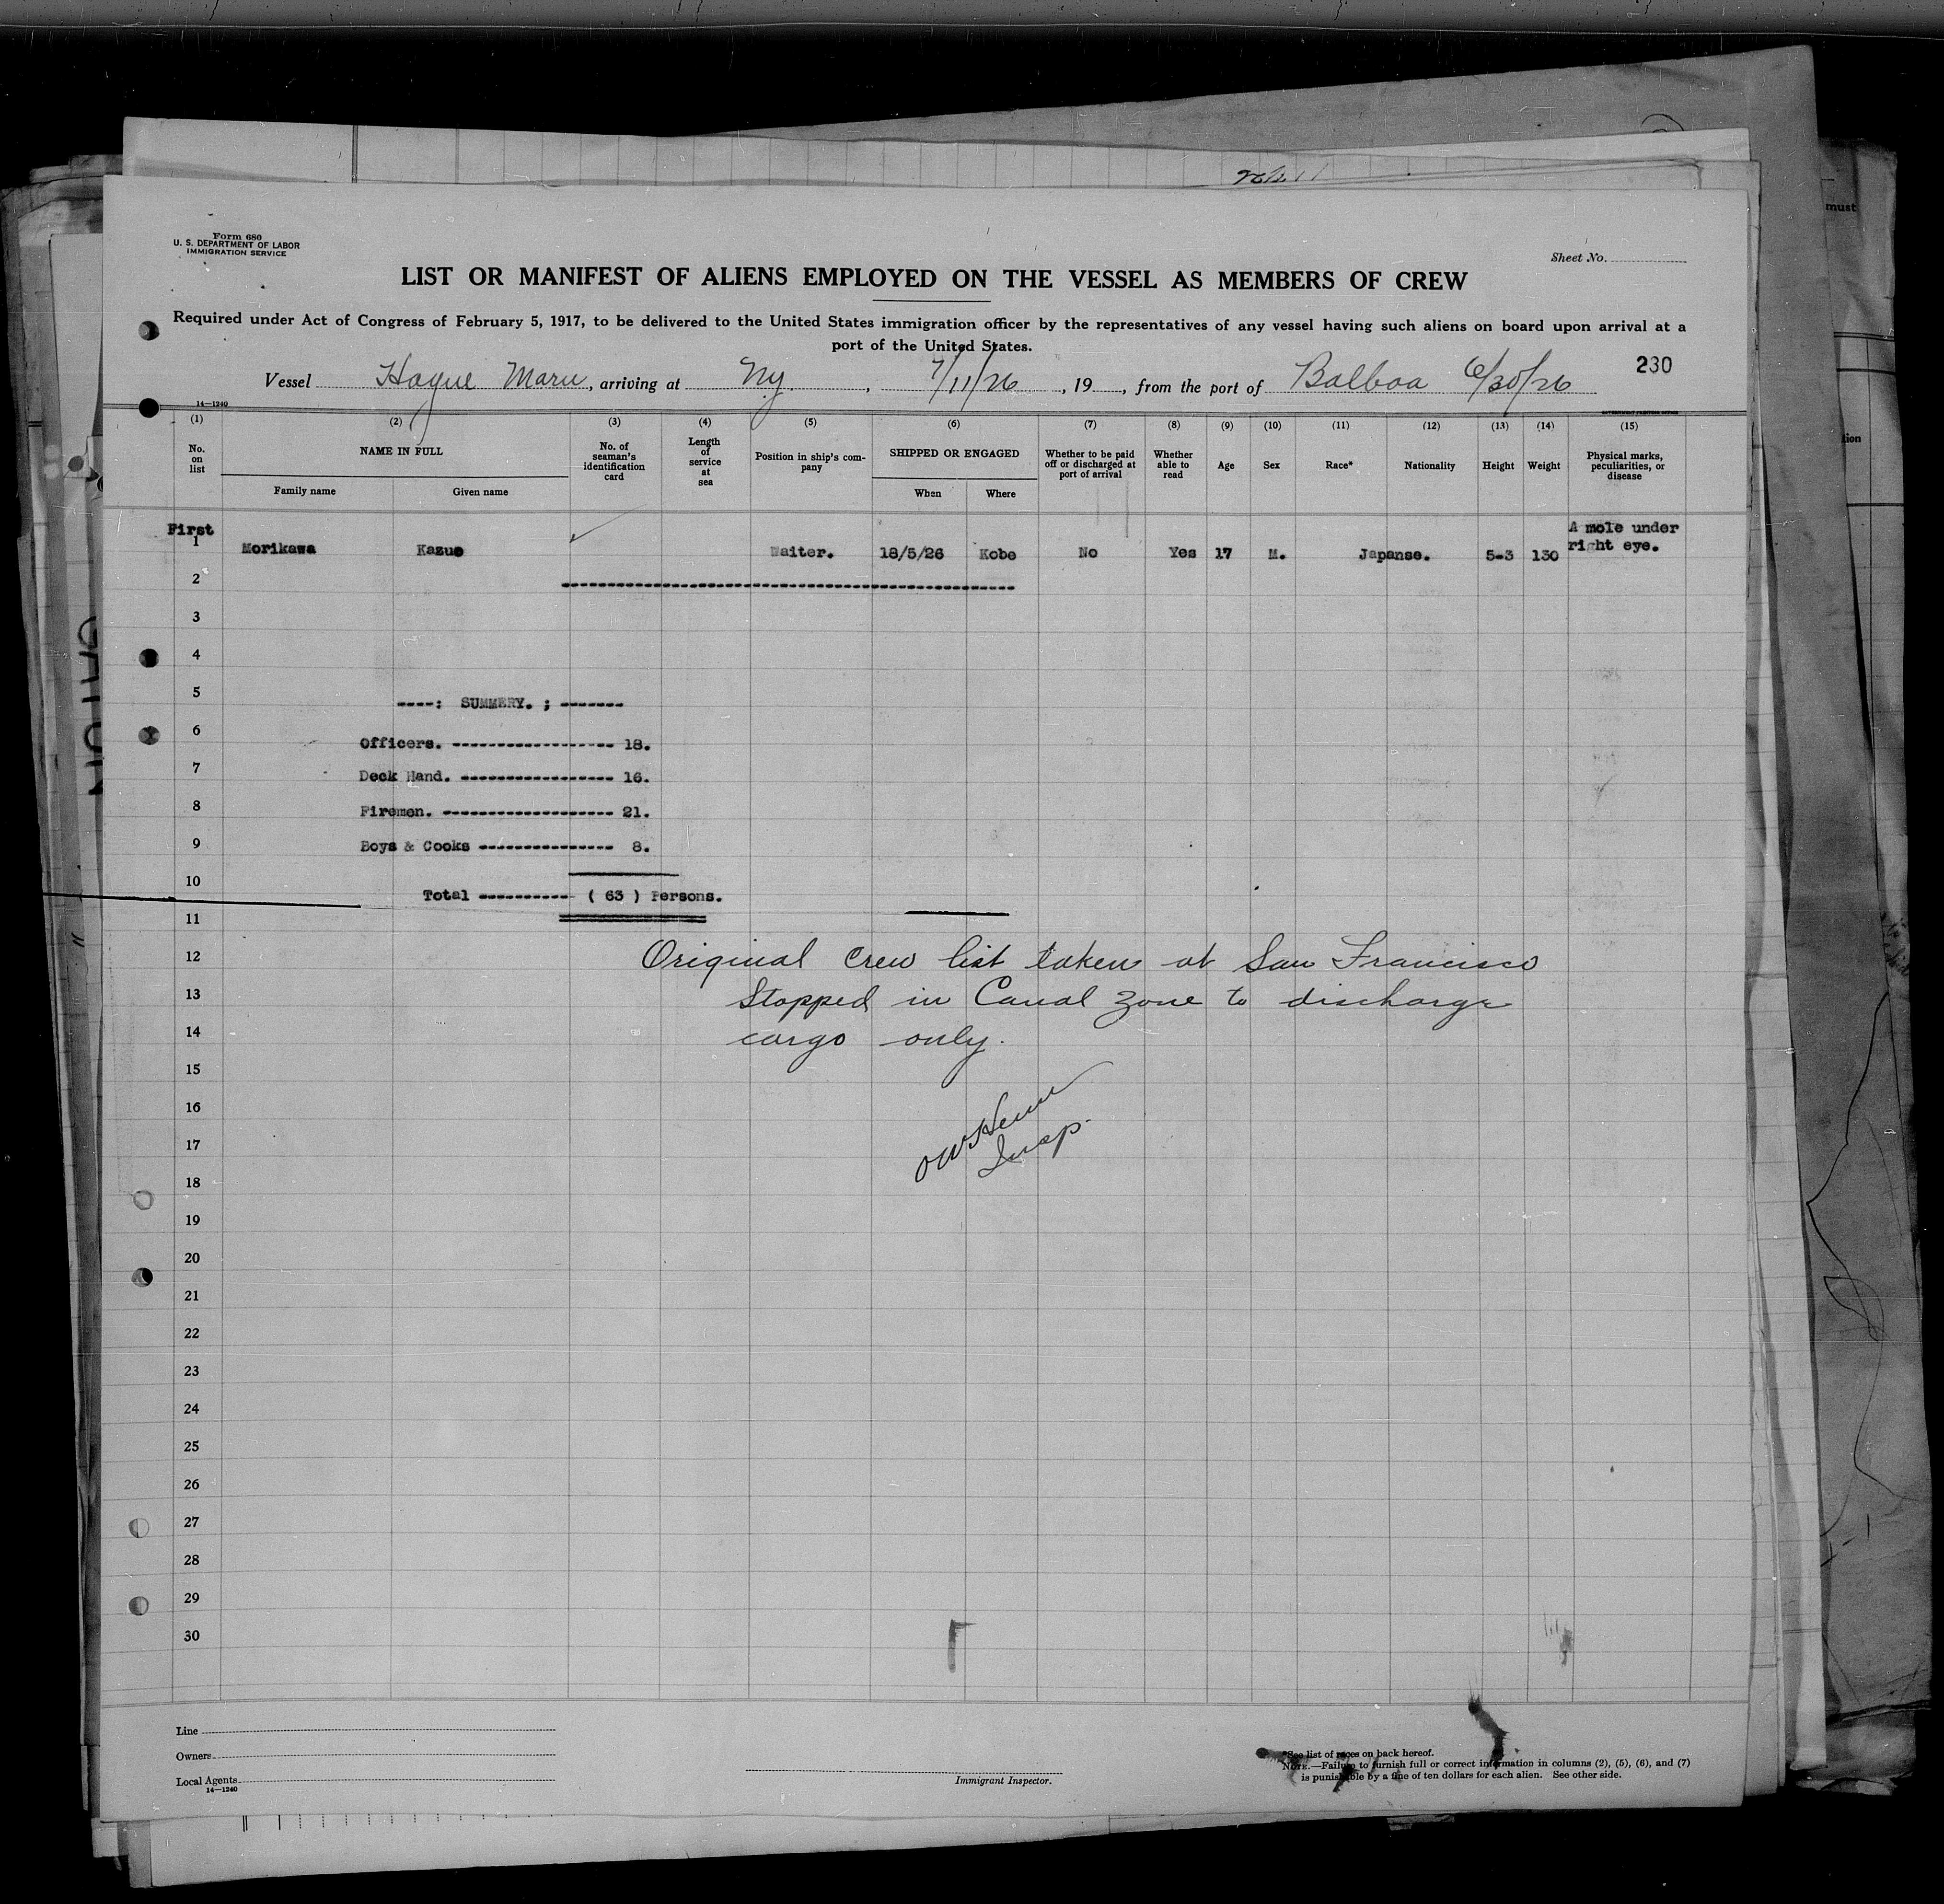 Form 680
U. S. DEPARTMENT OF LABOR
IMMIGRATION SERVICE
Sheet No.
LIST OR MANIFEST OF ALIENS EMPLOYED ON THE VESSEL AS MEMBERS OF CREW
Required under Act of Congress of February 5, 1917, to be delivered to the United States immigration officer by the representatives of any vessel having such aliens on board upon arrival at a
port of the United States.
230
Vessel Hague Maru, arriving at Ny, 7/11/26, 19, from the port of Balboa 6/30/26
14—1240
GOVERNMENT PRINTING OFFICE
(1) (2) (3) (4) (5) (6) (7) (8) (9) (10) (11) (12) (13) (14) (15)
No. on list
NAME IN FULL
Family name Given name
No. of seaman's identification card
Length of service at sea
Position in ship's company
SHIPPED OR ENGAGED
When Where
Whether to be paid off or discharged at port of arrival
Whether able to read
Age
Sex
Race*
Nationality
Height
Weight
Physical marks, peculiarities, or disease
First
1 Morikawa Kazue Waiter. 18/5/26 Kobe No Yes 17 M. Japanse. 5-3 130 A mole under right eye.
2 ------------------------------------------------
3
4
5 ----: SUMMERY. ; -------
6 Officers. ------------------ 18.
7 Deck Hand. ----------------- 16.
8 Firemen. ------------------- 21.
9 Boys & Cooks --------------- 8.
10 Total ---------- ( 63 ) Persons.
11
12 Original crew list taken at San Francisco
13 Stopped in Canal Zone to discharge
14 cargo only.
15
16
17 Insp.
18
19
20
21
22
23
24
25
26
27
28
29
30
Line
Owners
Local Agents
14—1240
Immigrant Inspector.
*See list of races on back hereof.
NOTE.—Failure to furnish full or correct information in columns (2), (5), (6), and (7)
is punishable by a fine of ten dollars for each alien. See other side.
must